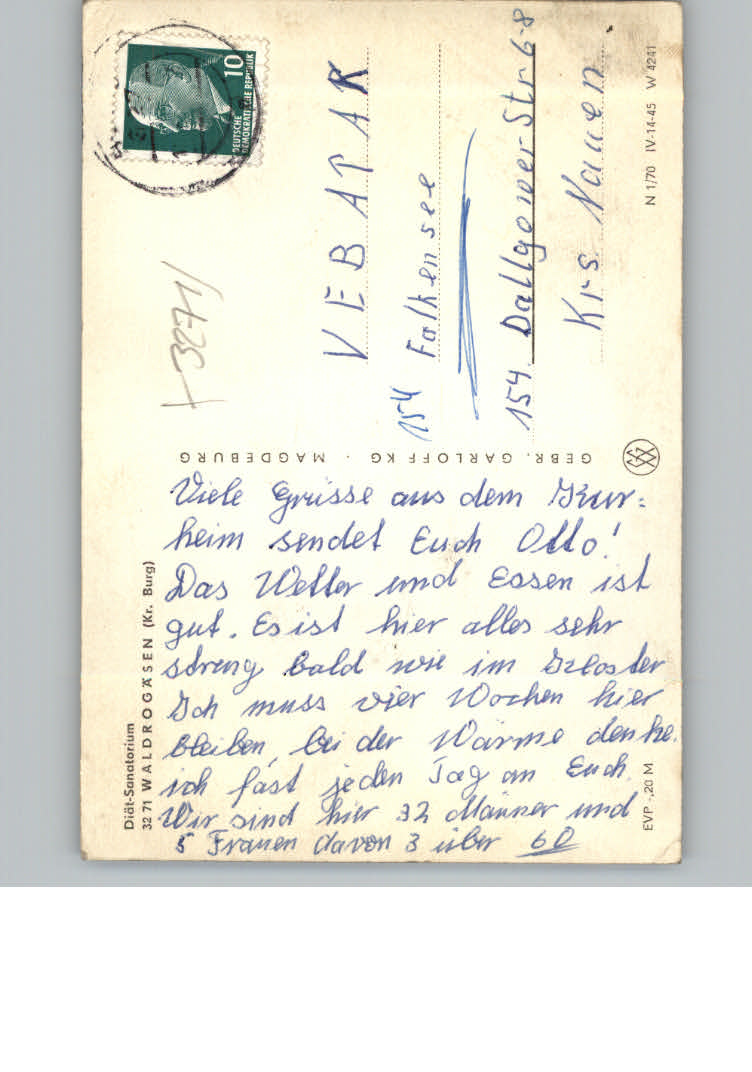 Diät-Sanatorium
32 71 WALDROGÄSEN (Kr. Burg)
Viele Grüsse aus dem Kur=
heim sendet Euch Otto!
Das Wetter und Essen ist
gut. Es ist hier alles sehr
streng bald wie im Kloster
Ich muss vier Wochen hier
bleiben, bei der Wärme denke.
ich fast jeden Tag an Euch.
Wir sind hier 32 Männer und
5 Frauen davon 3 über 60
EVP -,20 M
GEBR. GARLOFF KG · MAGDEBURG
3271
10
DEUTSCHE
DEMOKRATISCHE REPUBLIK
VEB APAK
154 Falkensee
154. Dallgower-Str 6-8
Krs Nauen
N 1/70 IV-14-45 W 4241